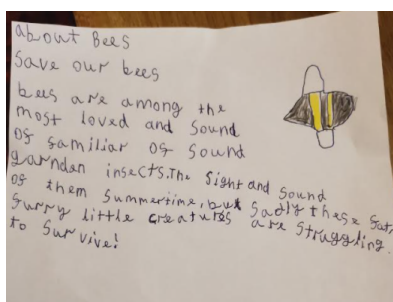 about Bees
Save our bees
bees are among the
most loved and sound
of familiar of sound
garnden insects.The Sight and Sound
of them Summertime, but Sadly these fat,
furry little creatures are struggling.
to Survive!